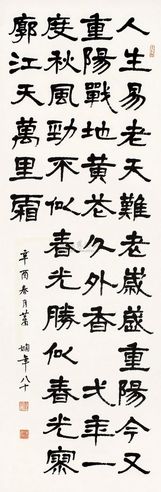 人生易老天難老歲歲重陽今又
重陽戰地黃花分外香弌年一
度秋風勁不似春光勝似春光寥
廓江天萬里霜
辛酉春月蕭
嫻年八十